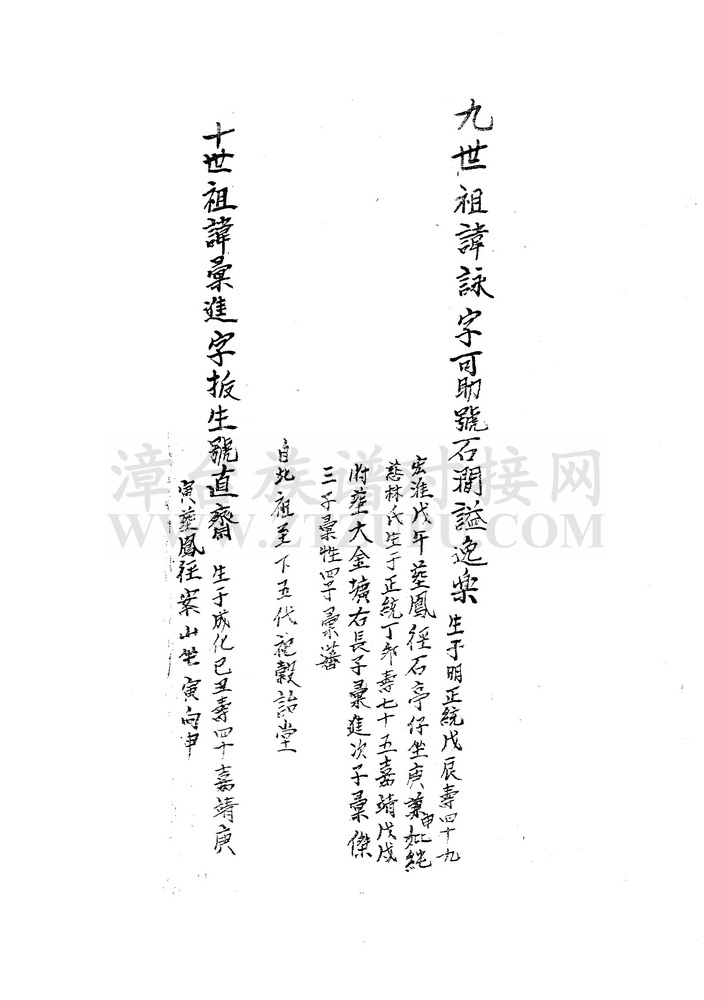 九世祖諱詠字可助號石澗謚逸樂 生于明正統戊辰壽四十九
宏淮戊午塟鳳徑石亭仔坐庚兼申妣純
慈林氏生于正統丁卯壽七十五嘉靖戊戌
附塟大金壙右長子彙進次子彙傑
三子彙牲四子彙蕃
自此祖至下五代祀穀詒堂
十世祖諱彙進字扳生號直齋 生于成化己丑壽四十嘉靖庚
寅塟鳳徑案山坐寅向申
漳台族谱对接网
WWW.ZTZUPU.COM